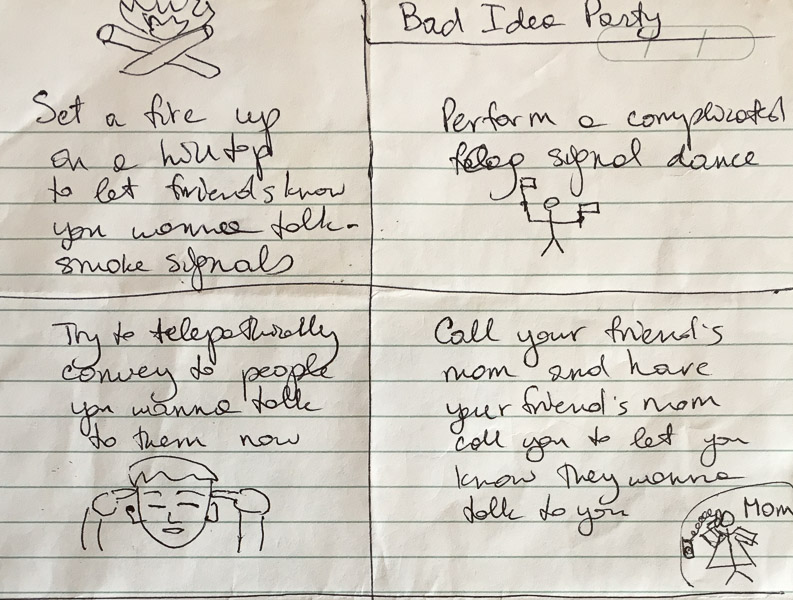 Bad Idea Party
Set a fire up
on a hilltop
to let friends know
you wanna talk -
smoke signals
Perform a complicated
flag signal dance
Try to telepathically
convey to people
you wanna talk
to them now
Call your friend's
mom and have
your friend's mom
call you to let you
know they wanna
talk to you
Mom